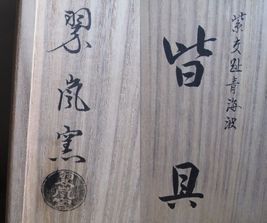 紫交趾青海波
皆具
翠嵐窯